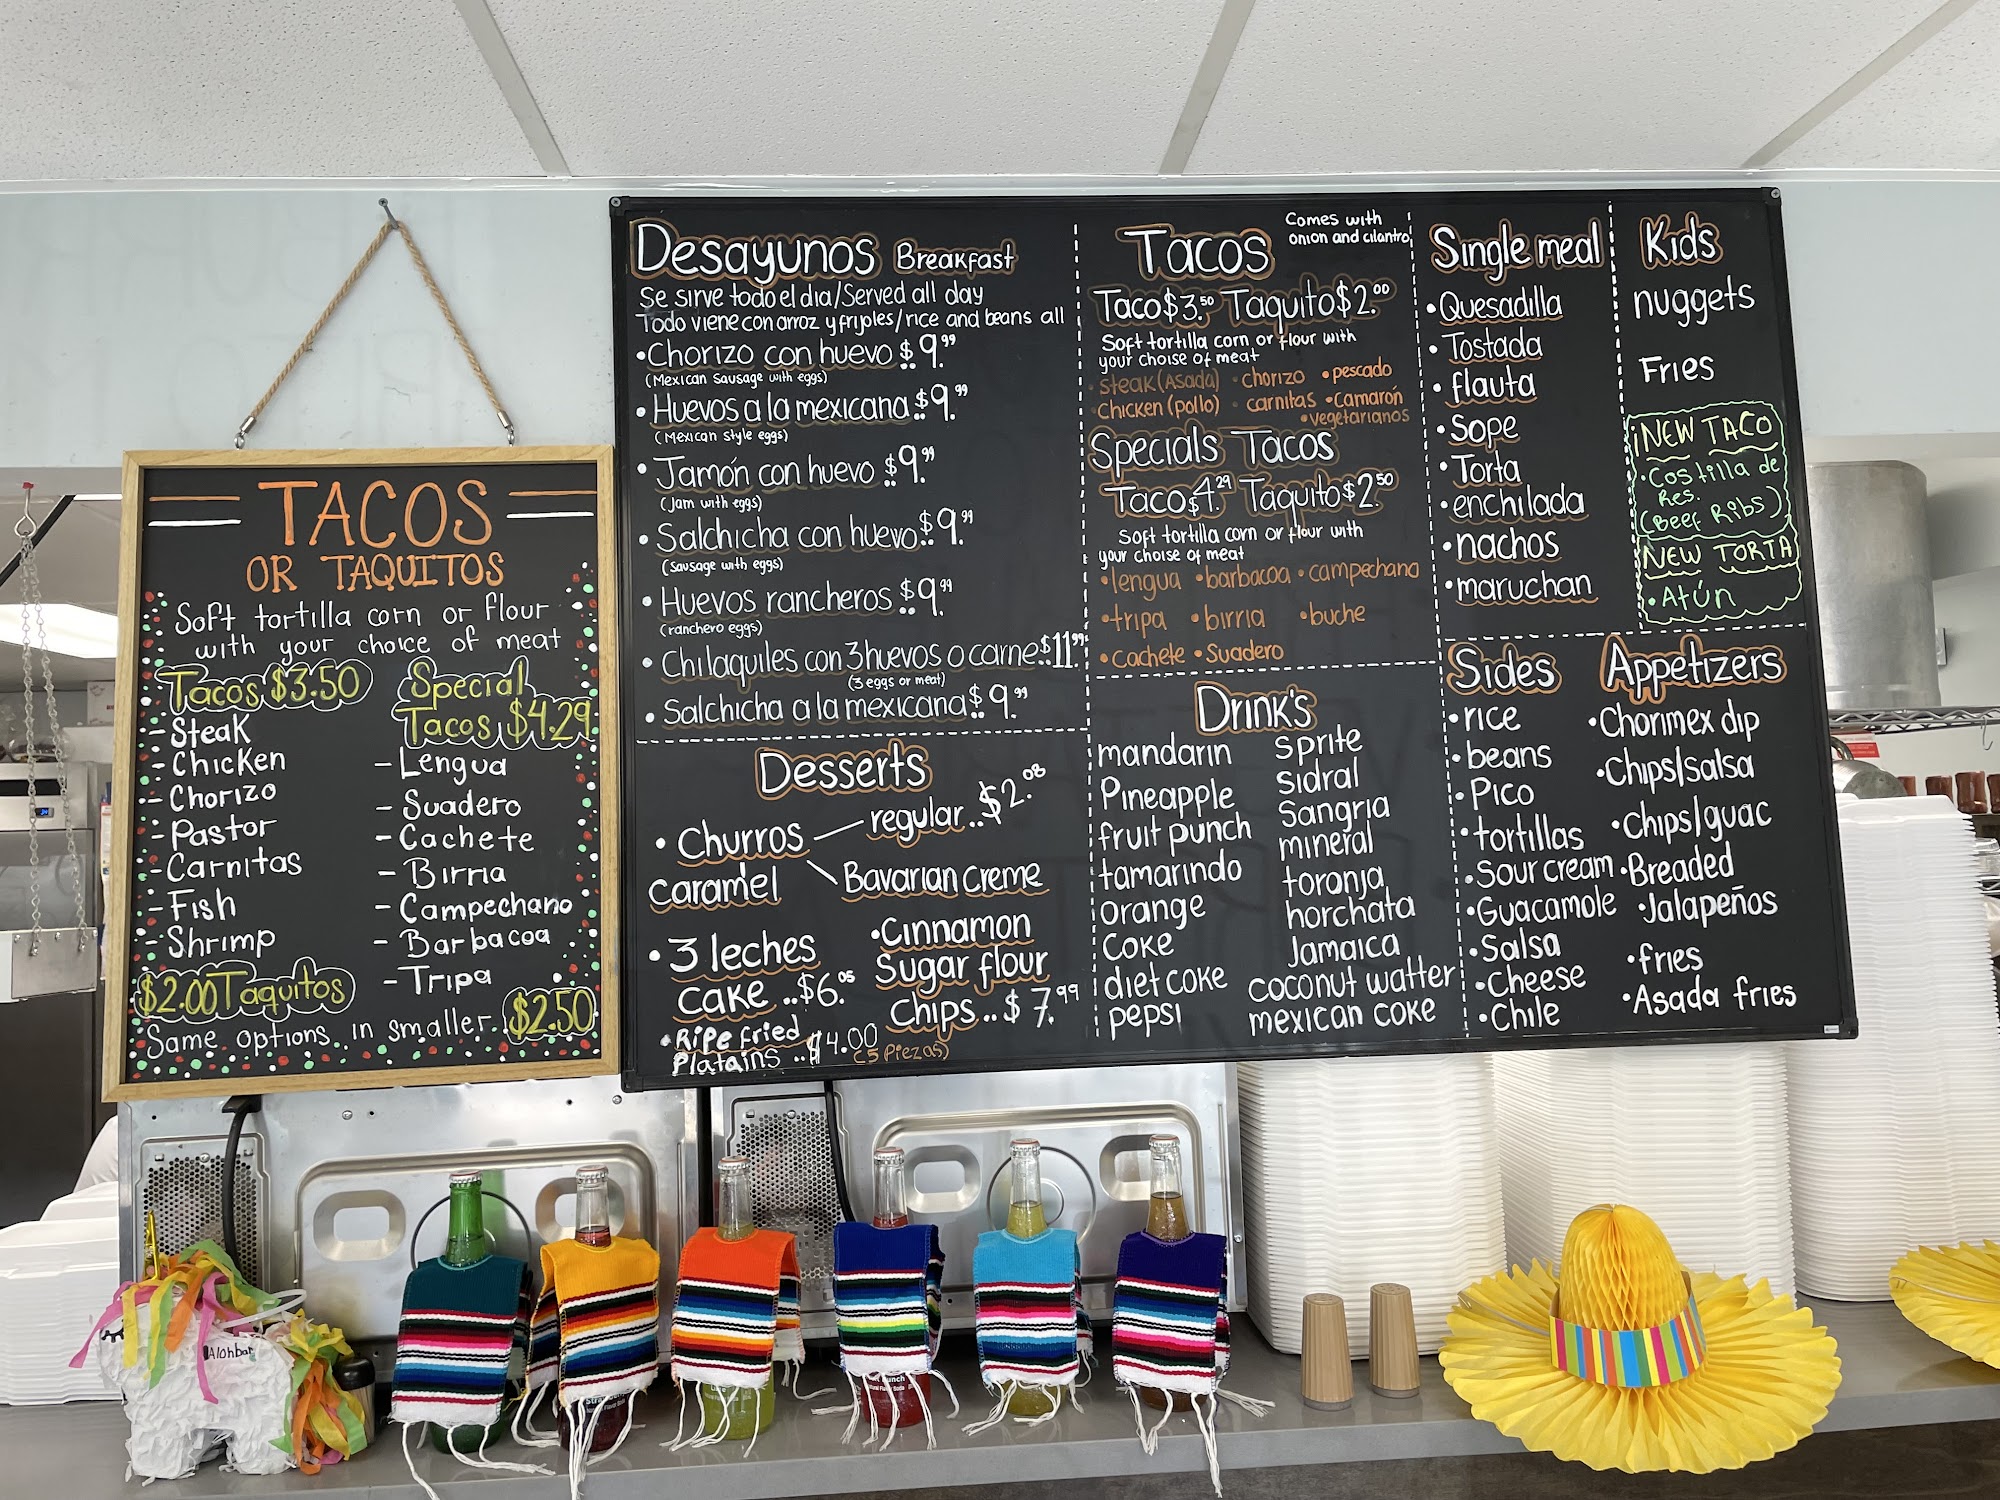 TACOS
OR TAQUITOS
Soft tortilla corn or flour
with your choice of meat
Tacos $3.50
- Steak
- Chicken
- Chorizo
- Pastor
- Carnitas
- Fish
- Shrimp
Special
Tacos $4.29
- Lengua
- Suadero
- Cachete
- Birria
- Campechano
- Barbacoa
- Tripa
$2.00 Taquitos
Same options in smaller. $2.50
Desayunos Breakfast
Se sirve todo el dia/Served all day
Todo viene con arroz y frijoles/rice and beans all
•Chorizo con huevo $9.99
(Mexican Sausage with eggs)
•Huevos a la mexicana $9.99
(Mexican style eggs)
•Jamón con huevo $9.99
(Jam with eggs)
•Salchicha con huevo $9.99
(Sausage with eggs)
•Huevos rancheros $9.99
(ranchero eggs)
•Chilaquiles con 3 huevos o carne $11.99
(3 eggs or meat)
•Salchicha a la mexicana $9.99
Desserts
•Churros
regular..$2.08
Bavarian creme
caramel
•3 leches
cake ..$6.05
•Cinnamon
Sugar flour
chips..$7.99
•Ripe fried
Platains ..$4.00
(5 Piezas)
Tacos
Comes with
onion and cilantro
Taco $3.50 Taquito $2.00
Soft tortilla corn or flour with
your choise of meat
•steak (Asada) •chorizo •pescado
•chicken (pollo) •carnitas •camarón
•vegetarianos
Specials Tacos
Taco $4.29 Taquito $2.50
Soft tortilla corn or flour with
your choise of meat
•lengua •barbacoa •campechana
•tripa •birria •buche
•Cachete •Suadero
Drink's
mandarin
Pineapple
fruit punch
tamarindo
orange
coke
diet coke
pepsi
Sprite
Sidral
Sangria
mineral
toronja
horchata
Jamaica
coconut watter
mexican coke
Single meal
•Quesadilla
•Tostada
•flauta
•Sope
•Torta
•enchilada
•nachos
•maruchan
Kids
nuggets
Fries
¡NEW TACO
•Costilla de
Res.
(Beef Ribs)
NEW TORTA
•Atún
Sides
•rice
•beans
•Pico
•tortillas
•Sour cream
•Guacamole
•Salsa
•Cheese
•Chile
Appetizers
•Chorimex dip
•Chips/salsa
•Chips/guac
•Breaded
•Jalapeños
•fries
•Asada fries